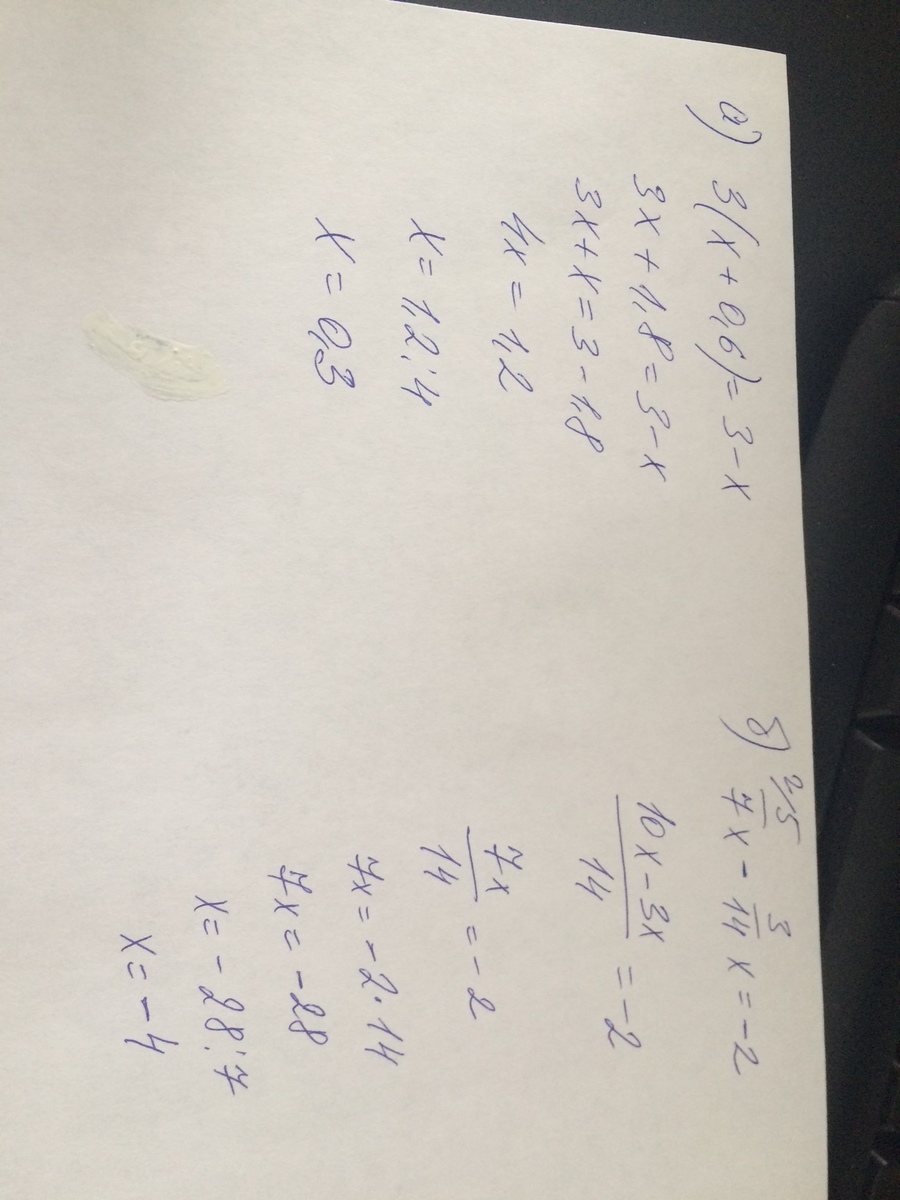 а) 3(x + 0,6) = 3 - x
3x + 1,8 = 3 - x
3x + x = 3 - 1,8
4x = 1,2
x = 1,2 : 4
x = 0,3
б) 2/5/7 x - 3/14 x = -2
10x - 3x/14 = -2
7x/14 = -2
7x = -2 · 14
7x = -28
x = -28 : 7
x = -4